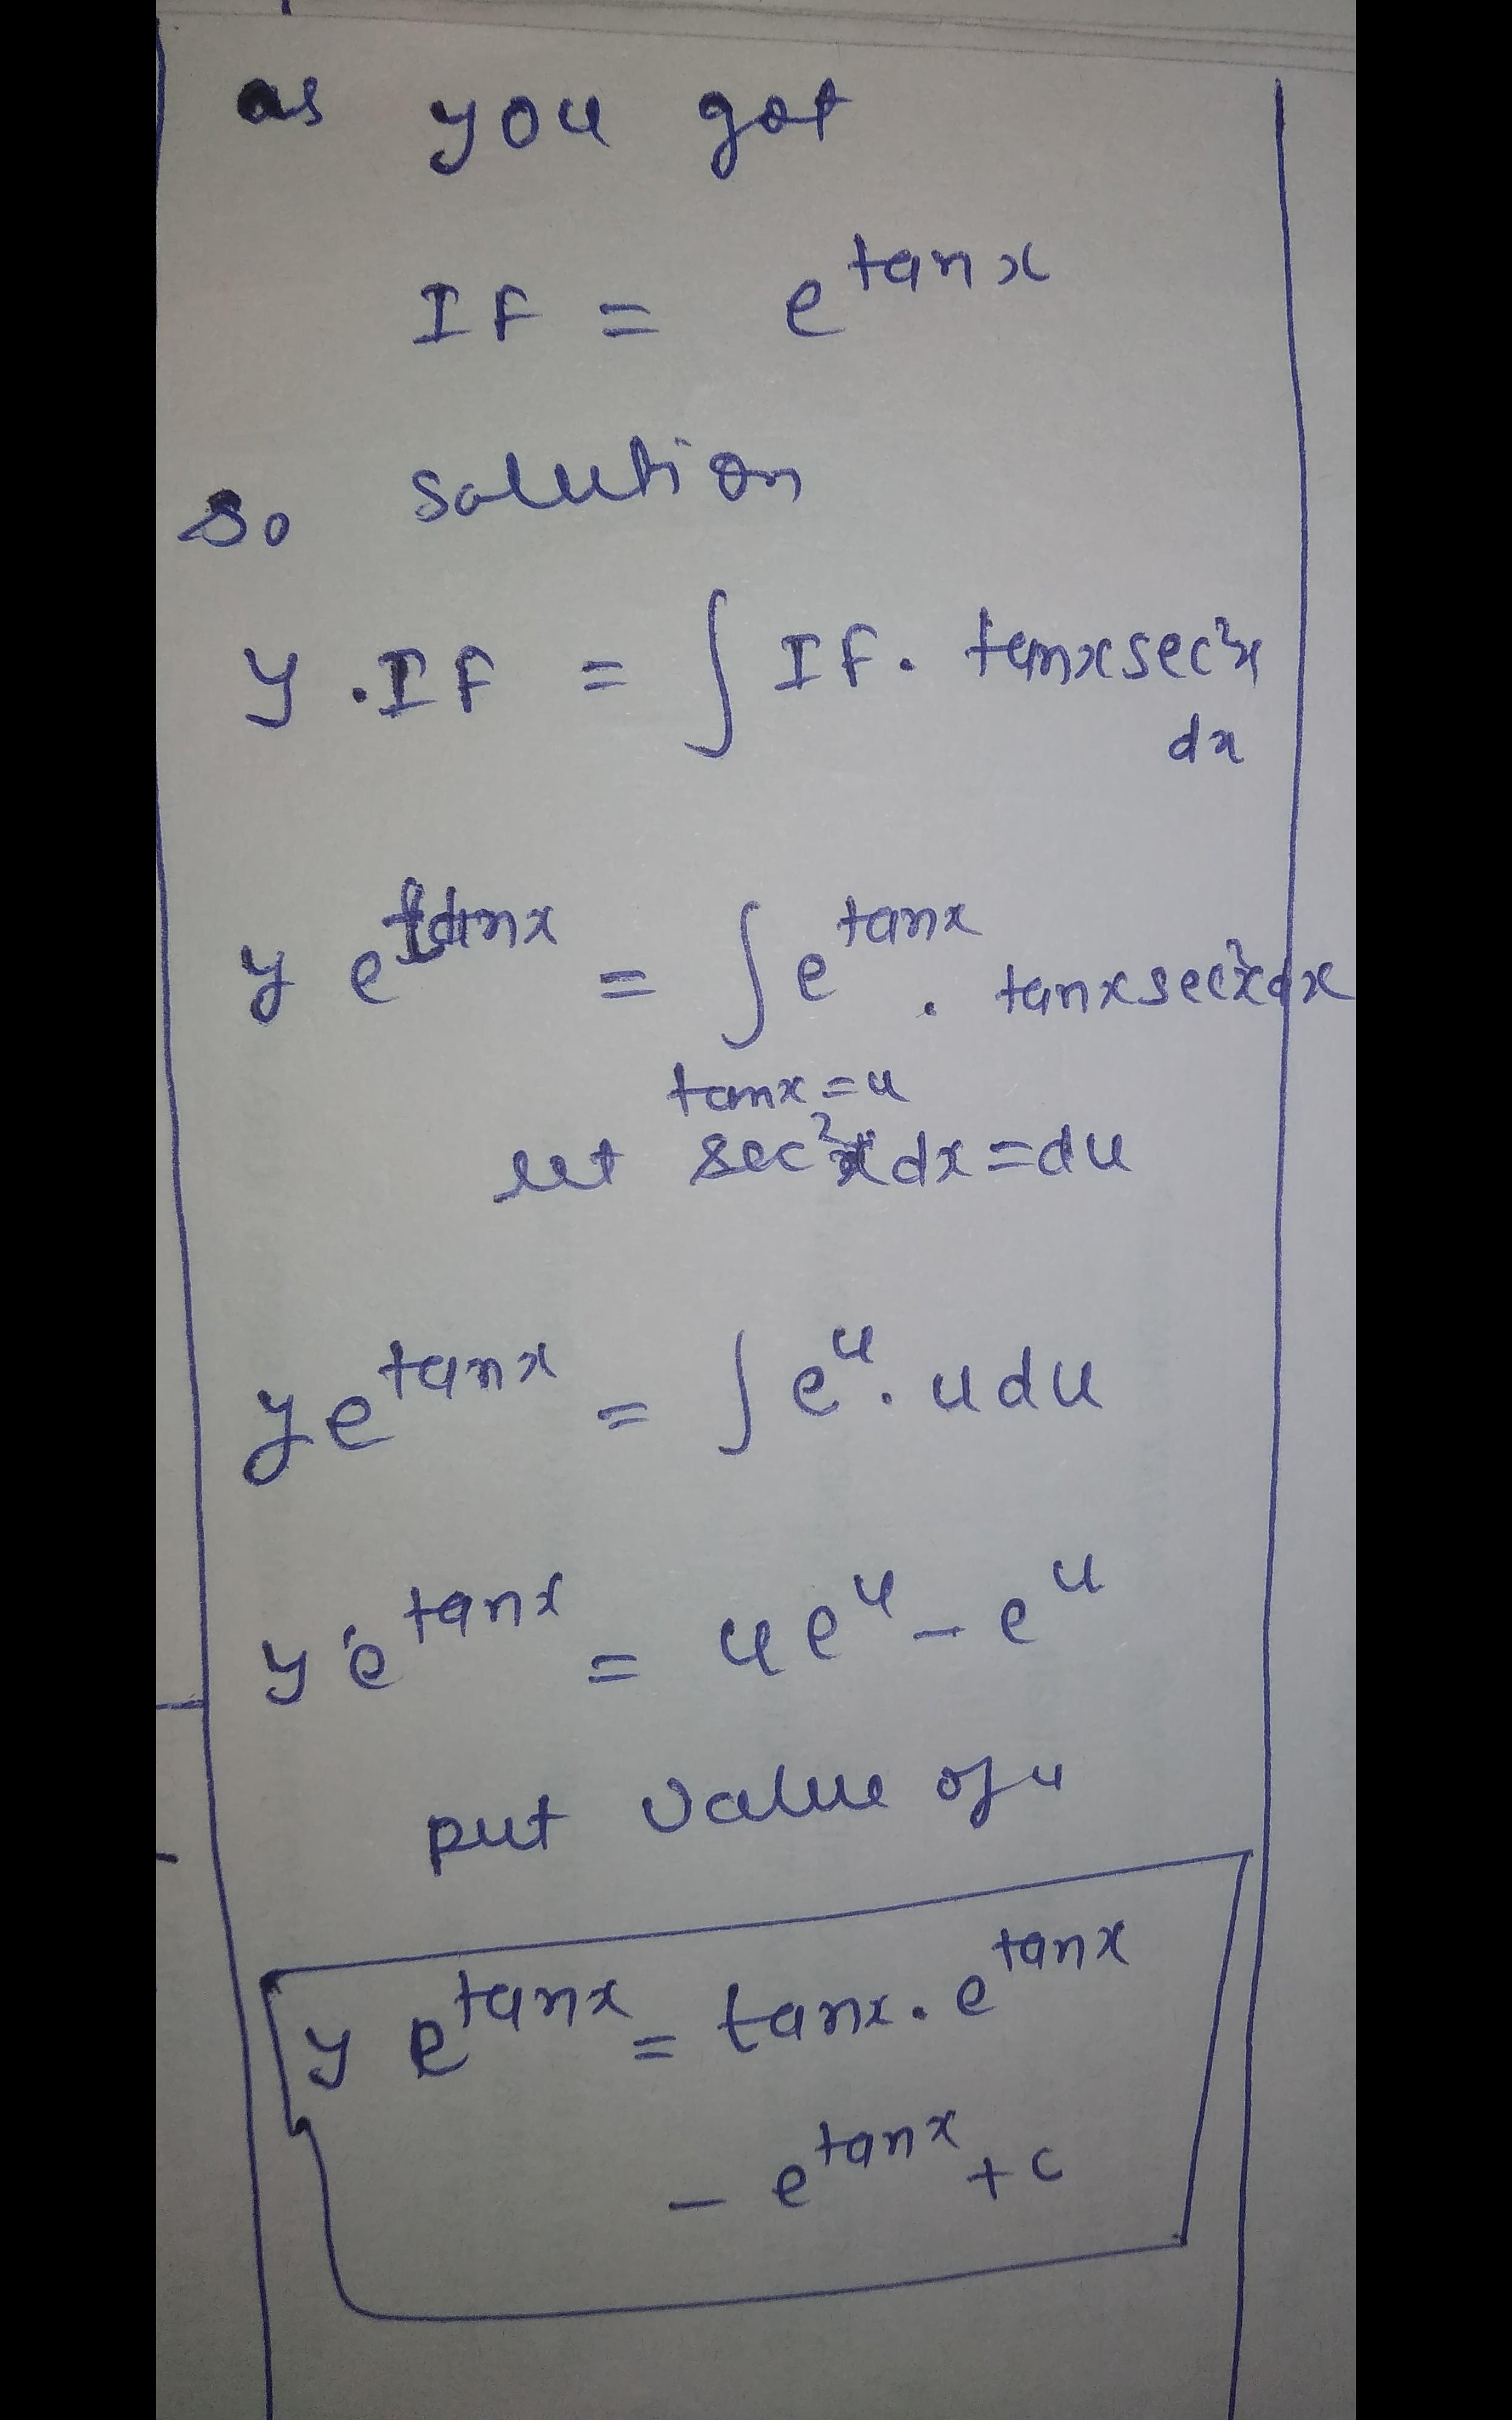 as you got
IF = e^tanx
so solution
y . IF = ∫ IF. tanxsec²x
dx
y e^tanx = ∫ e^tanx . tanxsec²xdx
tanx = u
let sec²x dx = du
ye^tanx = ∫ e^u . u du
ye^tanx = ue^u - e^u
put value of u
y e^tanx = tanx. e^tanx
- e^tanx + c